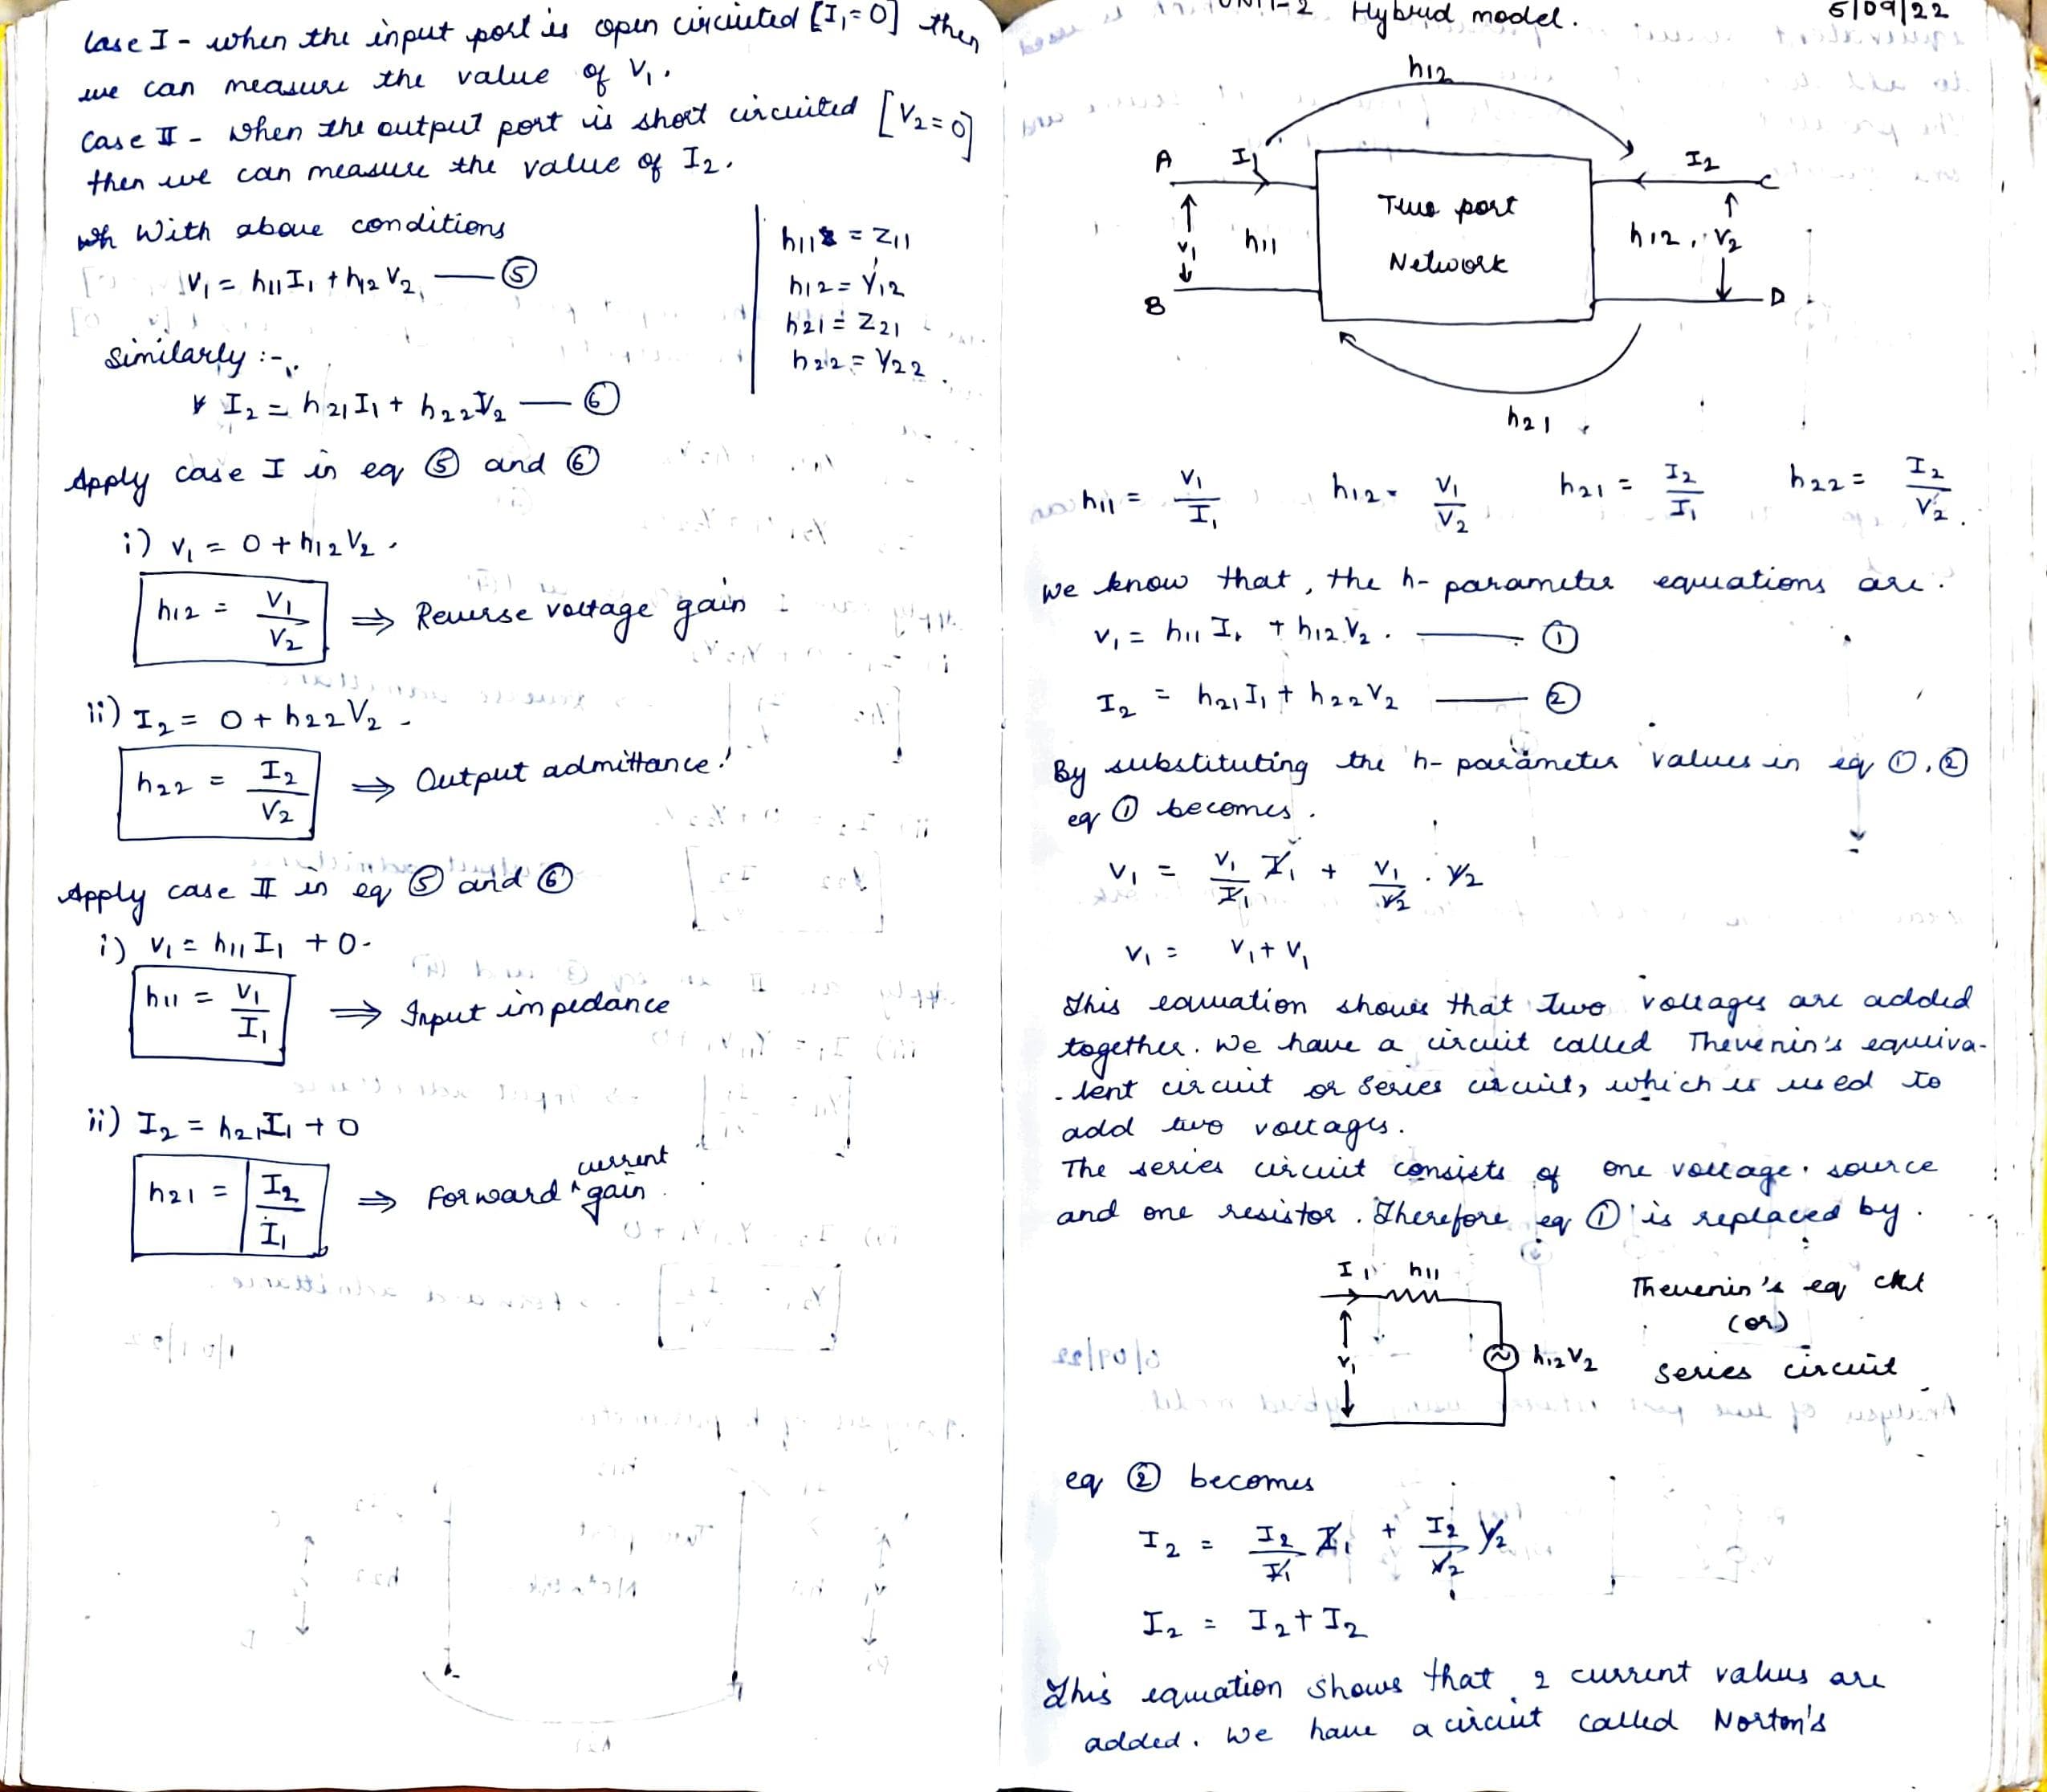 Case I - when the input port is open circuited [I₁=0] then
we can measure the value of V₁.
Case II - When the output port is short circuited [V₂=0]
then we can measure the value of I₂.
With above conditions
V₁ = h₁₁I₁ + h₁₂V₂ — ⑤
Similarly :-
I₂ = h₂₁I₁ + h₂₂V₂ — ⑥
h₁₁ = Z₁₁
h₁₂ = Y₁₂
h₂₁ = Z₂₁
h₂₂ = Y₂₂.
Apply case I in eq ⑤ and ⑥
i) V₁ = 0 + h₁₂V₂.
h₁₂ = V₁/V₂ ⇒ Reverse voltage gain
ii) I₂ = 0 + h₂₂V₂.
h₂₂ = I₂/V₂ ⇒ Output admittance.
Apply case II in eq ⑤ and ⑥
i) V₁ = h₁₁I₁ + 0.
h₁₁ = V₁/I₁ ⇒ Input impedance
ii) I₂ = h₂₁I₁ + 0
h₂₁ = I₂/I₁ ⇒ Forward ^current gain.
UNIT-2 Hybrid model. 5/09/22
h₁₂
A I₁ I₂ C
Two port
Network
V₁ h₁₁ h₁₂, V₂
B D
h₂₁
h₁₁ = V₁/I₁ h₁₂ = V₁/V₂ h₂₁ = I₂/I₁ h₂₂ = I₂/V₂.
We know that, the h-parameter equations are.
V₁ = h₁₁ I₁ + h₁₂ V₂. — ①
I₂ = h₂₁I₁ + h₂₂V₂ — ②
By substituting the h-parameter values in eq ①, ②
eq ① becomes.
V₁ = V₁/I₁ I₁ + V₁/V₂ . V₂
V₁ = V₁ + V₁
This equation shows that two voltages are added
together. We have a circuit called Thevenin's equiva-
-lent circuit or series circuit, which is used to
add two voltages.
The series circuit consists of one voltage source
and one resistor. Therefore eq ① is replaced by.
I₁ h₁₁
V₁ h₁₂V₂
Thevenin's eq ckt
(or)
series circuit
eq ② becomes
I₂ = I₂/I₁ I₁ + I₂/V₂ V₂
I₂ = I₂ + I₂
This equation shows that 2 current values are
added. We have a circuit called Norton's